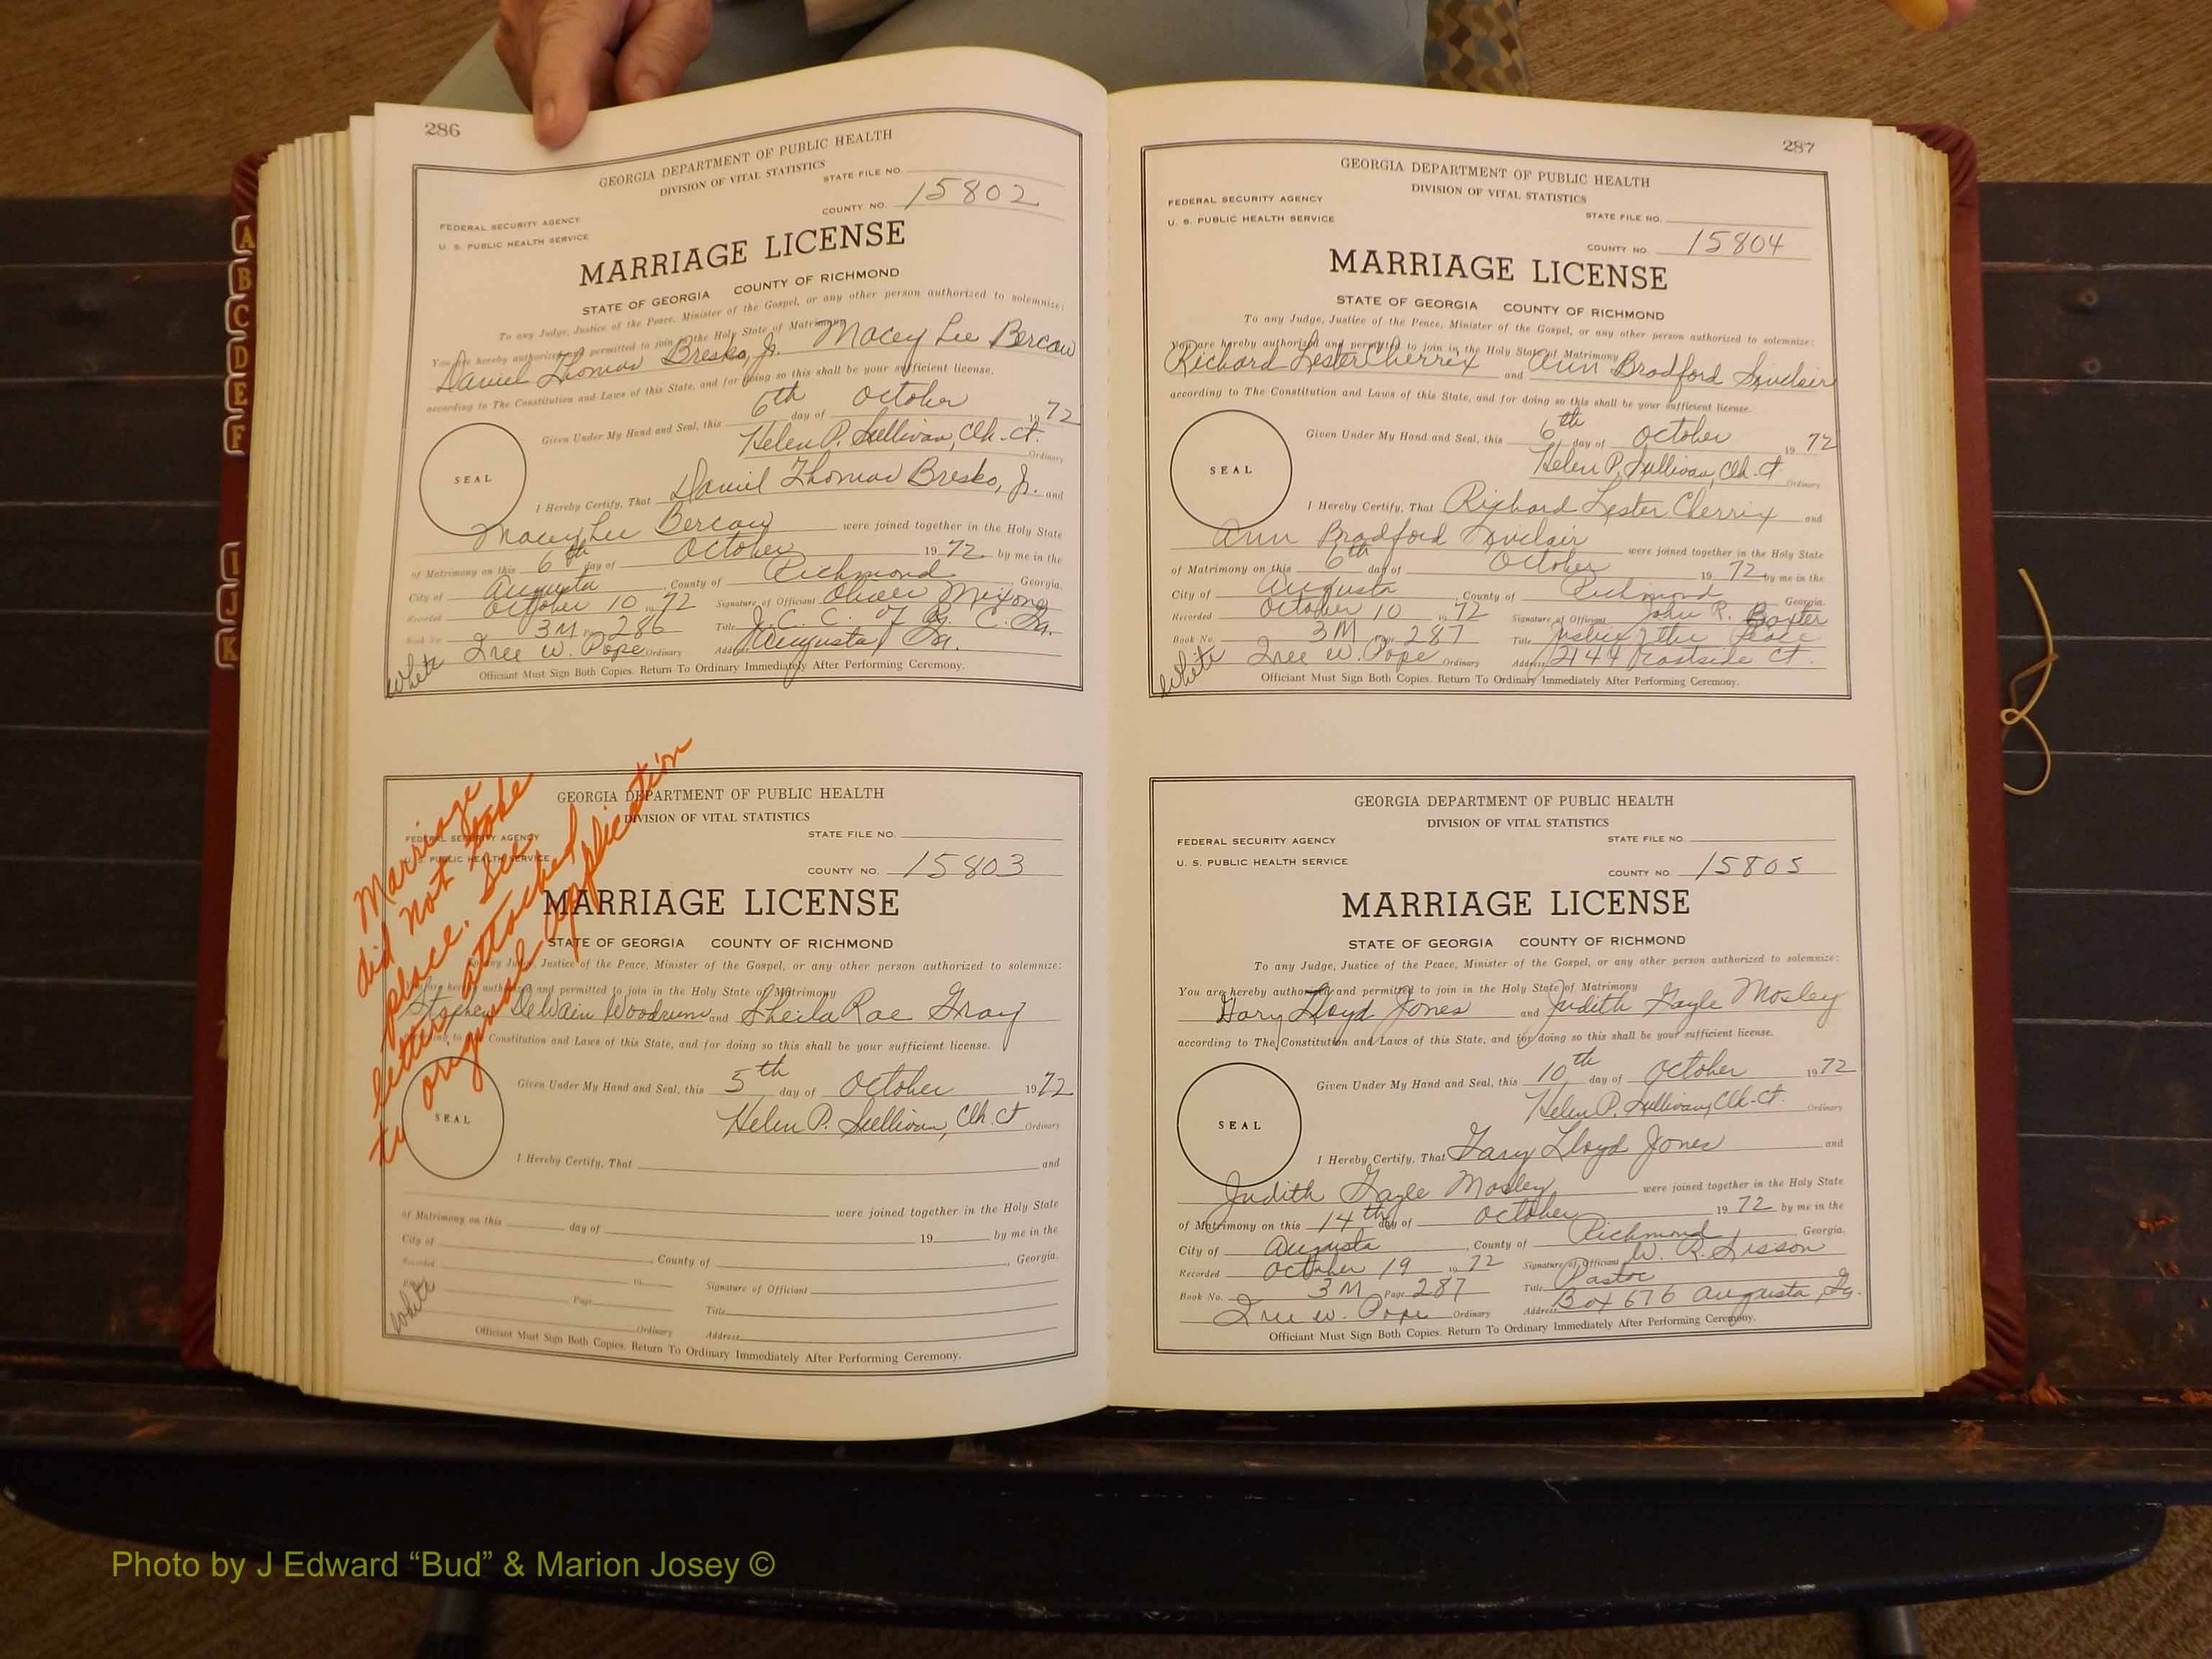 286
GEORGIA DEPARTMENT OF PUBLIC HEALTH
DIVISION OF VITAL STATISTICS
STATE FILE NO.
COUNTY NO. 15802
FEDERAL SECURITY AGENCY
U. S. PUBLIC HEALTH SERVICE
MARRIAGE LICENSE
STATE OF GEORGIA COUNTY OF RICHMOND
To any Judge, Justice of the Peace, Minister of the Gospel, or any other person authorized to solemnize:
You are hereby authorized and permitted to join in the Holy State of Matrimony
Daniel Thomas Bresko, Jr. Macey Lee Bercaw
according to The Constitution and Laws of this State, and for doing so this shall be your sufficient license.
Given Under My Hand and Seal, this 6th day of October 1972
Helen P. Sullivan, Clk. Ct.
Ordinary
SEAL
I Hereby Certify, That Daniel Thomas Bresko, Jr. and
Macey Lee Bercaw were joined together in the Holy State
of Matrimony on this 6th day of October 1972 by me in the
City of Augusta, County of Richmond, Georgia.
Recorded October 10 1972 Signature of Official Oliver Mixon
Book No. 3M Page 286 Title J. C. C. of R. C. Ga.
Iree W. Pope Ordinary Address Augusta, Ga.
White
Officiant Must Sign Both Copies. Return To Ordinary Immediately After Performing Ceremony.
Marriage
did not take
place. See
letter attached
to original application
GEORGIA DEPARTMENT OF PUBLIC HEALTH
DIVISION OF VITAL STATISTICS
FEDERAL SECURITY AGENCY
STATE FILE NO.
U. S. PUBLIC HEALTH SERVICE
COUNTY NO. 15803
MARRIAGE LICENSE
STATE OF GEORGIA COUNTY OF RICHMOND
To any Judge, Justice of the Peace, Minister of the Gospel, or any other person authorized to solemnize:
You are hereby authorized and permitted to join in the Holy State of Matrimony
Stephen DeWain Woodrum and Sheila Rae Gray
according to The Constitution and Laws of this State, and for doing so this shall be your sufficient license.
Given Under My Hand and Seal, this 5th day of October 1972
Helen P. Sullivan, Clk. Ct
Ordinary
SEAL
I Hereby Certify, That and
were joined together in the Holy State
of Matrimony on this day of 19 by me in the
City of , County of , Georgia.
Recorded 19 Signature of Official
Page Title
Ordinary Address
White
Officiant Must Sign Both Copies. Return To Ordinary Immediately After Performing Ceremony.
287
GEORGIA DEPARTMENT OF PUBLIC HEALTH
DIVISION OF VITAL STATISTICS
FEDERAL SECURITY AGENCY
STATE FILE NO.
U. S. PUBLIC HEALTH SERVICE
COUNTY NO. 15804
MARRIAGE LICENSE
STATE OF GEORGIA COUNTY OF RICHMOND
To any Judge, Justice of the Peace, Minister of the Gospel, or any other person authorized to solemnize:
You are hereby authorized and permitted to join in the Holy State of Matrimony
Richard Lester Cherrix and Ann Bradford Sinclair
according to The Constitution and Laws of this State, and for doing so this shall be your sufficient license.
Given Under My Hand and Seal, this 6th day of October 1972
Helen P. Sullivan, Clk. Ct.
Ordinary
SEAL
I Hereby Certify, That Richard Lester Cherrix and
Ann Bradford Sinclair were joined together in the Holy State
of Matrimony on this 6th day of October 1972 by me in the
City of Augusta, County of Richmond Georgia.
Recorded October 10 1972 Signature of Official John R. Baxter
Book No. 3M Page 287 Title Justice of the Peace
Iree W. Pope Ordinary Address 2144 Ct.
White
Officiant Must Sign Both Copies. Return To Ordinary Immediately After Performing Ceremony.
GEORGIA DEPARTMENT OF PUBLIC HEALTH
DIVISION OF VITAL STATISTICS
FEDERAL SECURITY AGENCY
STATE FILE NO.
U. S. PUBLIC HEALTH SERVICE
COUNTY NO. 15805
MARRIAGE LICENSE
STATE OF GEORGIA COUNTY OF RICHMOND
To any Judge, Justice of the Peace, Minister of the Gospel, or any other person authorized to solemnize:
You are hereby authorized and permitted to join in the Holy State of Matrimony
Gary Lloyd Jones and Judith Gayle Mosley
according to The Constitution and Laws of this State, and for doing so this shall be your sufficient license.
Given Under My Hand and Seal, this 10th day of October 1972
Helen P. Sullivan, Clk. Ct.
Ordinary
SEAL
I Hereby Certify, That Gary Lloyd Jones and
Judith Gayle Mosley were joined together in the Holy State
of Matrimony on this 14th day of October 1972 by me in the
City of Augusta, County of Richmond, Georgia.
Recorded October 19 1972 Signature of Official W. R. Sisson
Book No. 3M Page 287 Title Pastor
Iree W. Pope Ordinary Address Box 676 Augusta, Ga.
Officiant Must Sign Both Copies. Return To Ordinary Immediately After Performing Ceremony.
A
B
C
D
E
F
I
J
K
Photo by J Edward “Bud” & Marion Josey ©